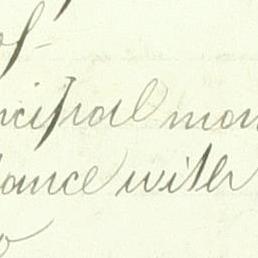 of
ncipal mon
dance with